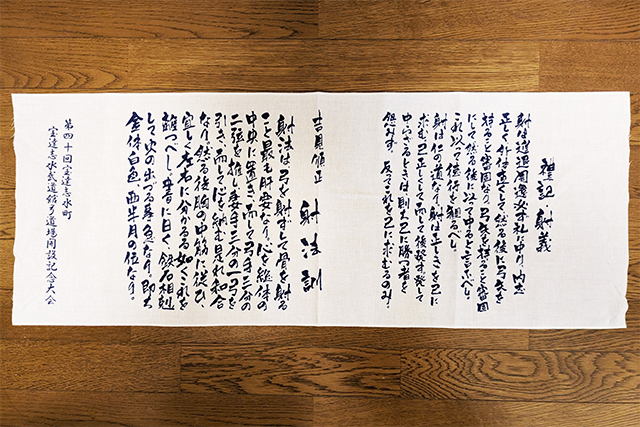 禮記 射義
射は進退周還必ず礼に中り、内志
正しく、外体直くして、然る後に弓矢を
持ること審固なり。弓矢を持ること審固
にして、然る後に以って中ると言ふべし。
これ以って徳行を観るべし。
射は仁の道なり。射は正しきを己に
求む。己正しくして而して後発す。発して
中らざるときは、則ち己に勝つ者を
怨みず。反ってこれを己に求むるのみ。
射法訓
吉見順正
射法は、弓を射ずして骨を射る
こと最も肝要なり。心を総体の
中央に置き、而して弓手三分の
二弦を推し、妻手三分の一弓を
引き、而して心を納む是れ和合
なり。然る後胸の中筋に従ひ、
宜しく左右に分かるる如くこれを
離つべし。書に曰く、鉄石相剋
して火の出づる事急なり。即ち
金体白色、西半月の位なり。
第四十回宝達志水町
宝達志水武道館弓道場開設記念大会